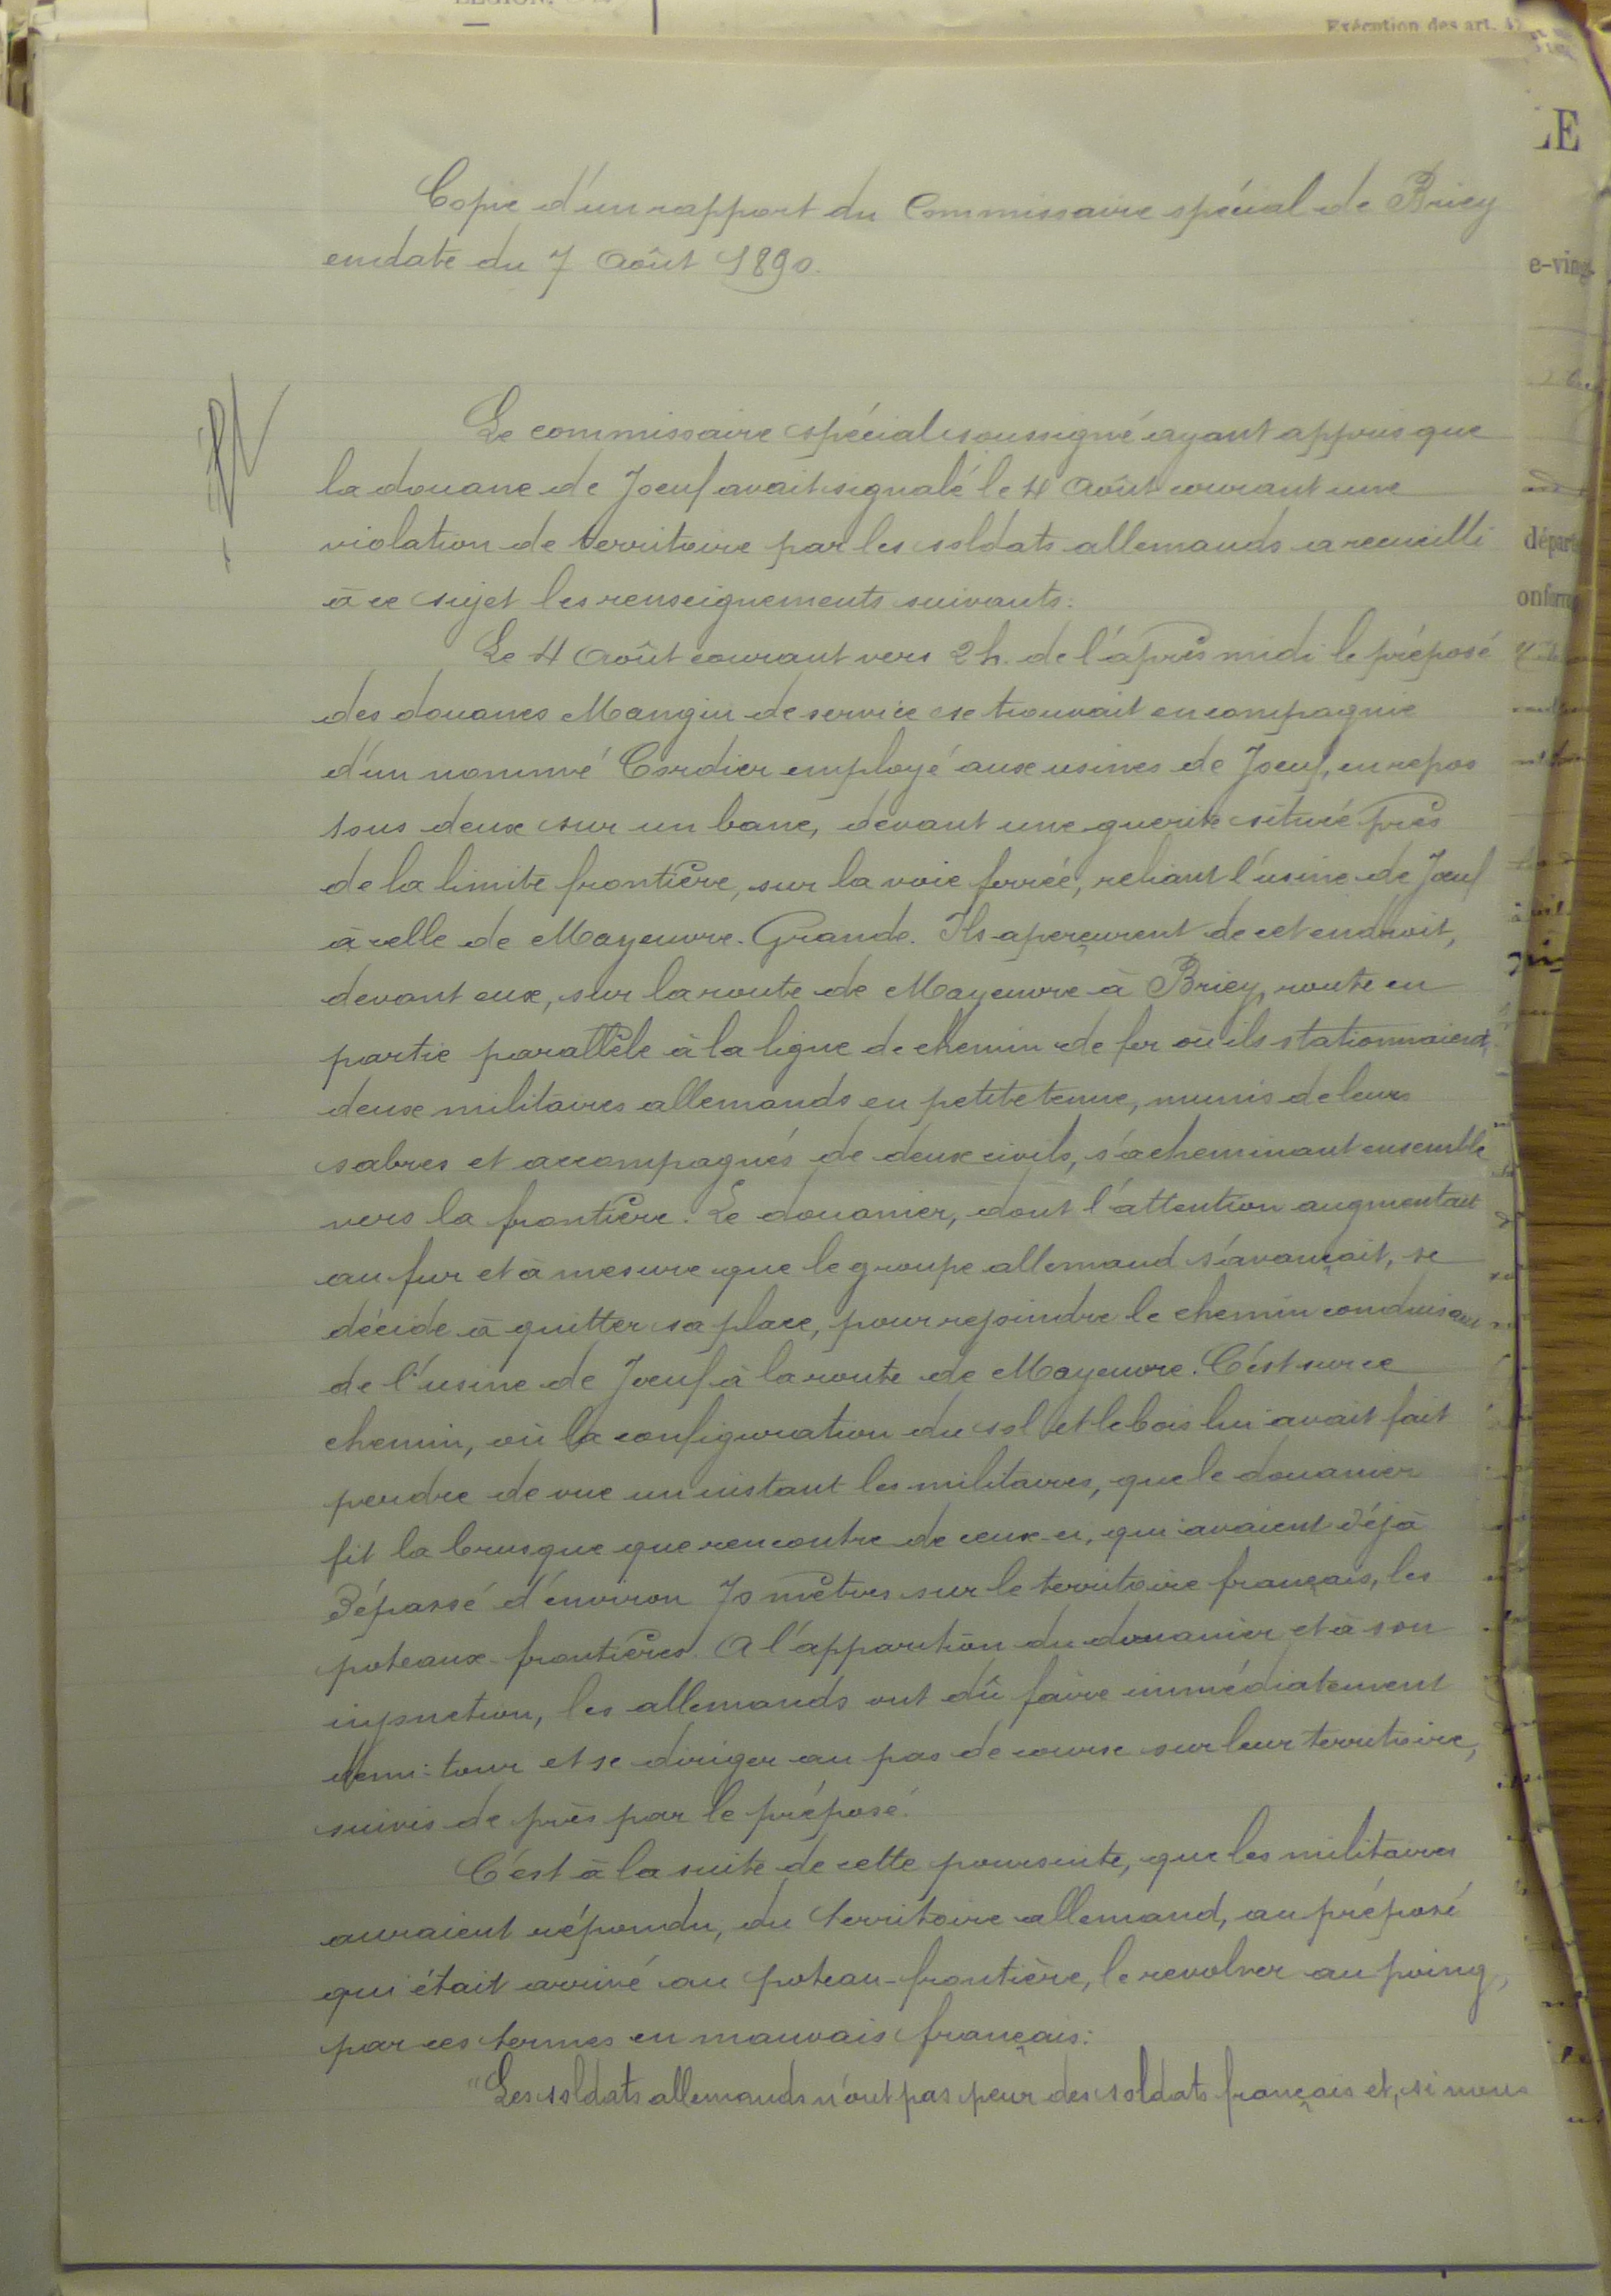 LEGION.
Exécution des art. 42
LE
Copie d'un rapport du Commissaire spécial de Briey
en date du 7 Août 1890.
e-ving
Le commissaire spécial soussigné ayant appris que
la douane de Joeuf avait signalé le 4 Août courant une
violation de territoire par les soldats allemands a recueilli
départ
à ce sujet les renseignements suivants:
onform
Le 4 Août courant vers 2 h. de l'après midi le préposé
des douanes Mangin de service se trouvait en compagnie
d'un nommé Cordier employé aux usines de Joeuf, en repos
tous deux sur un banc, devant une guerite située près
de la limite frontière, sur la voie ferrée, reliant l'usine de Joeuf
à celle de Moyeuvre-Grande. Ils aperçurent de cet endroit,
devant eux, sur la route de Moyeuvre à Briey, route en
partie parallèle à la ligne de chemin de fer où ils stationnaient,
deux militaires allemands en petite tenue, munis de leurs
sabres et accompagnés de deux civils, s'acheminant ensemble
vers la frontière. Le douanier, dont l'attention augmentait
au fur et à mesure que le groupe allemand s'avançait, se
décide à quitter sa place, pour rejoindre le chemin conduisant
de l'usine de Joeuf à la route de Moyeuvre. C'est sur ce
chemin, où la configuration du sol et le bois lui avait fait
perdre de vue un instant les militaires, que le douanier
fit la brusque que rencontre de ceux-ci, qui avaient déjà
dépassé d'environ 70 mètres sur le territoire français, les
poteaux-frontières. A l'apparition du douanier et à son
injonction, les allemands ont dû faire immédiatement
demi-tour et se diriger au pas de course sur leur territoire,
suivis de près par le préposé.
C'est à la suite de cette poursuite, que les militaires
auraient répondu, du territoire allemand, au préposé
qui était arrivé au poteau-frontière, le revolver au poing,
par ces termes en mauvais français:
"Les soldats allemands n'ont pas peur des soldats français et, si nous